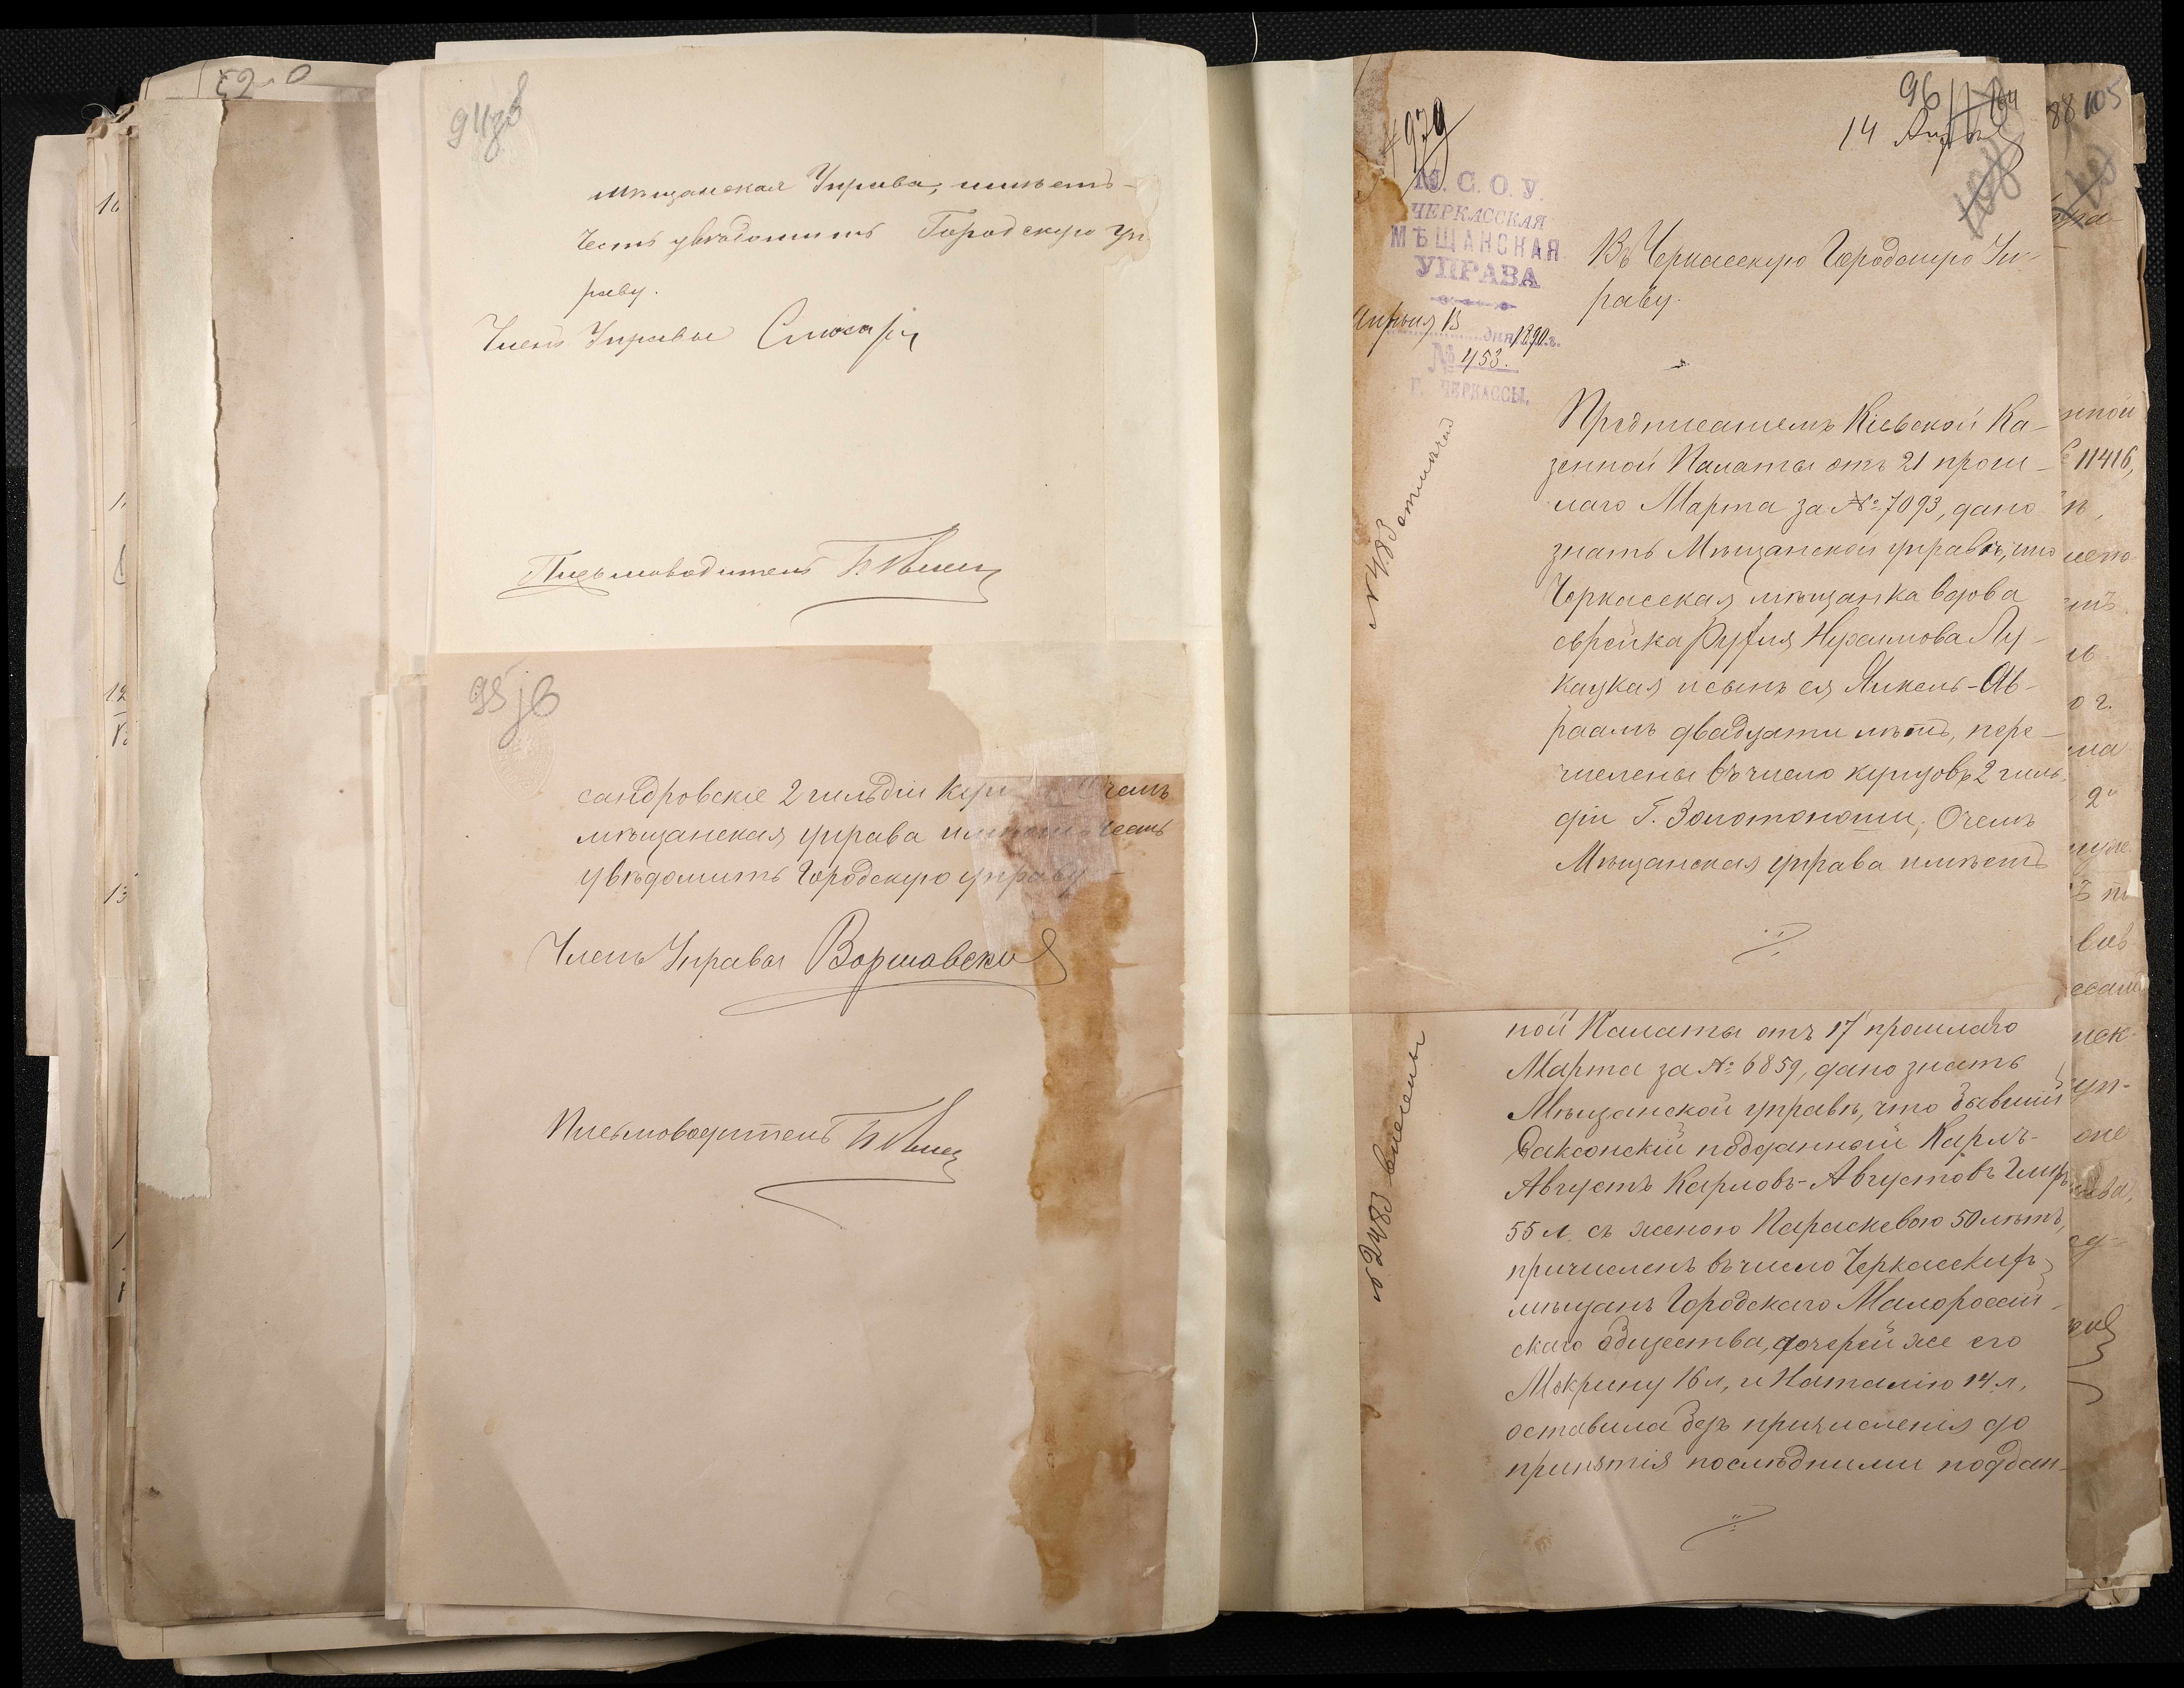 мѣщанская Управа, имѣетъ-
честь увѣдомить Городскую Уп
раву.
Членъ Управы
Письмоводитель
сандровскіе 2 гильдіи куп О чемъ
мѣщанская управа имѣетъ честь
увѣдомить Городскую управу -
Членъ Управы Варшавскій
Письмоводитель
96
14 Апрѣля
М. С. О. У.
ЧЕРКАССКАЯ
МѢЩАНСКАЯ
УПРАВА
Апрѣля 13 дня 1890 г.
№ 453.
Г. ЧЕРКАССЫ.
Въ Черкасскую Городскую Уп-
раву.
Предписаніемъ Кіевской Ка-
зенной Палаты отъ 21 прош-
лаго Марта за № 7093, дано
знать Мѣщанской управѣ, что
Черкасская мѣщанка вдова
еврейка Лу-
кацкая и сынъ ея Янкель-Ав-
раамъ двадцати лѣтъ, пере-
числены въ число купцовъ 2 гиль-
діи Г. Золотоноши, О чемъ
Мѣщанская управа имѣетъ
ной Палаты отъ 17 прошлаго
Марта за № 6859, дано знать
Мѣщанской управѣ, что бывшій
Саксонскій подданный Карлъ-
Августъ Карловъ-Августовъ
55 л. съ женою Параскевою 50 лѣтъ,
причисленъ въ число Черкасскихъ
мѣщанъ Городскаго Малороссій-
скаго общества, дочерей же его
Макрину 16 л, и Наталію 14 л,
оставила безъ причисленія до
принятія послѣдними поддан-
88 105
нной
11416,